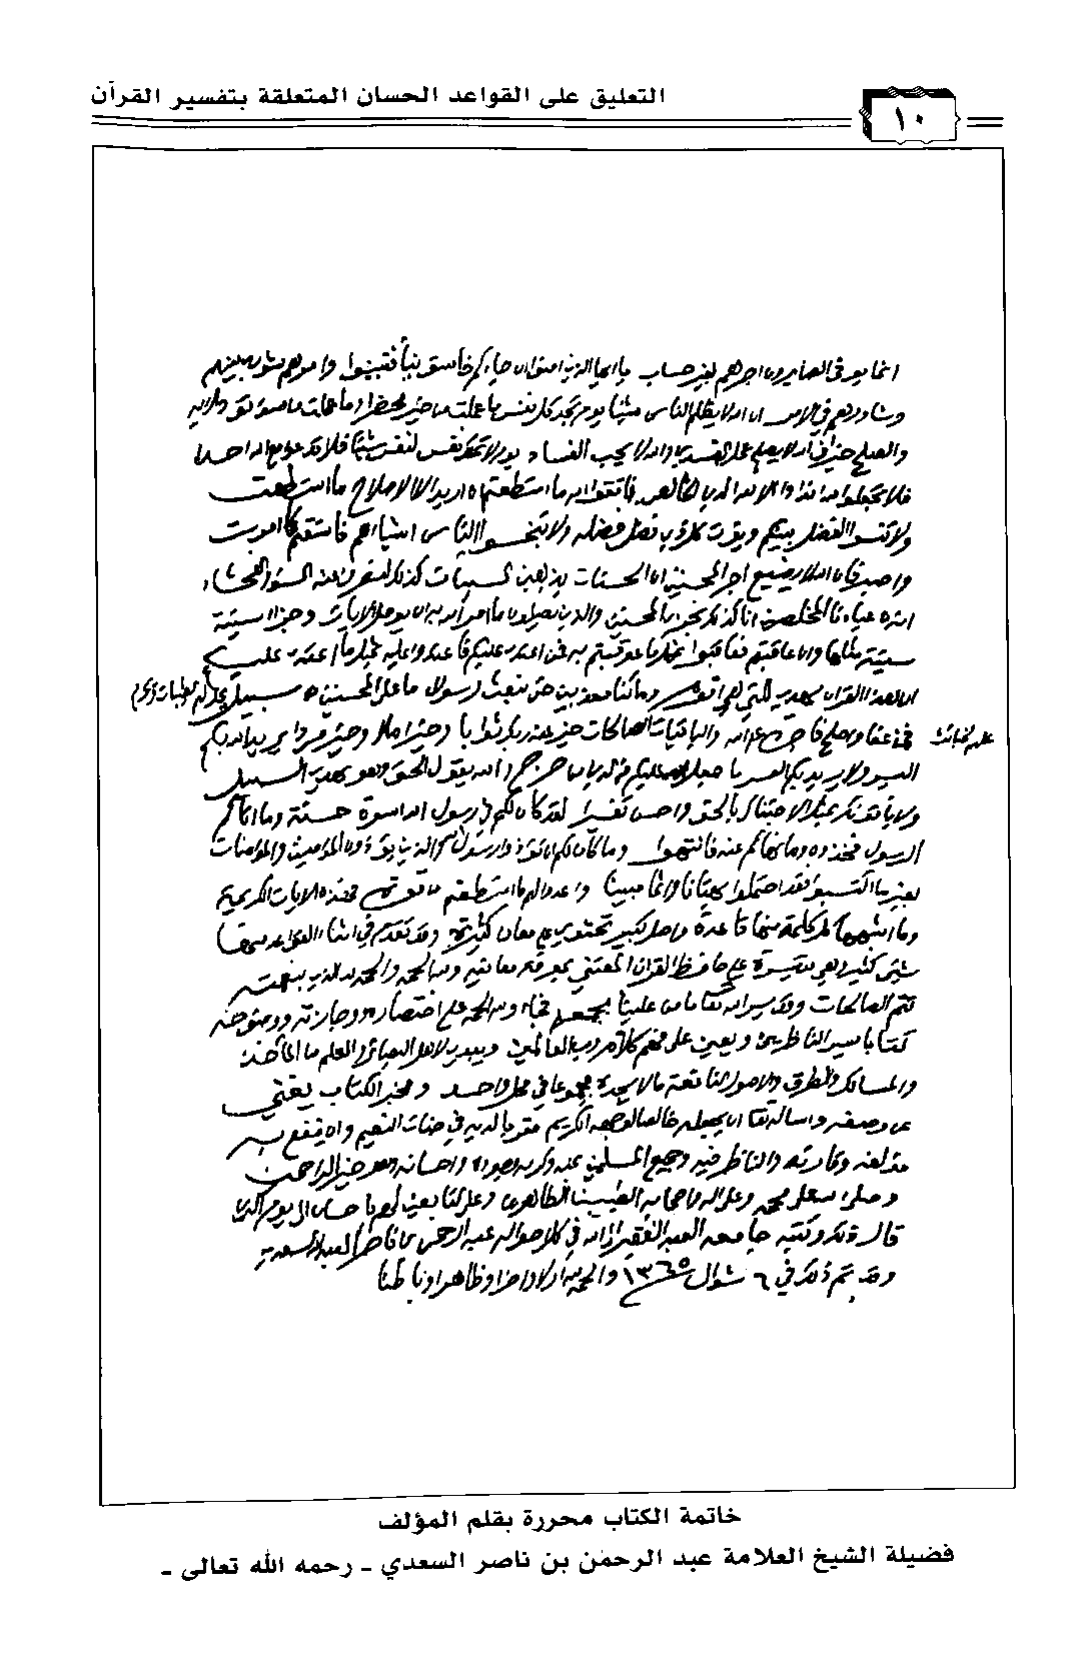 التعليق على القواعد الحسان المتعلقة بتفسير القرآن
١٠
انما يوفى الصابرون اجرهم بغير حساب يا ايها الذين امنوا ان جاءكم فاسق بنبأ فتبينوا وامرهم شورى بينهم
وشاورهم في الامر ان الله لا يظلم الناس شيئا يوم تجد كل نفس ما عملت من خير محضرا وما عملت من سوء
والصلح خير ان الله لا يصلح عمل المفسدين والله لا يحب الفساد يوم لا تملك نفس لنفس شيئا فلا تدعوا مع الله احدا
فلا تجعلوا لله اندادا الا لله الدين الخالص فاتقوا الله ما استطعتم ان اريد الا الاصلاح ما استطعت
ولا تنسوا الفضل بينكم ويؤت كل ذي فضل فضله ولا تبخسوا الناس اشياءهم فاستقم كما امرت
واصبر فان الله لا يضيع اجر المحسنين ان الحسنات يذهبن السيئات كذلك لنصرف عنه السوء والفحشاء
انه من عبادنا المخلصين انا كذلك نجزي المحسنين والذين يصلون ما امر الله به ان يوصل وجزاء سيئة
سيئة مثلها وان عاقبتم فعاقبوا بمثل ما عوقبتم به فمن اعتدى عليكم فاعتدوا عليه بمثل ما اعتدى عليكم
ان هذا القران يهدي للتي هي اقوم وما كنا معذبين حتى نبعث رسولا ما على المحسنين من سبيل
فمن عفا واصلح فاجره على الله والباقيات الصالحات خير عند ربك ثوابا وخير املا وخير مردا يريد الله بكم
اليسر ولا يريد بكم العسر ما جعل عليكم في الدين من حرج والله يقول الحق وهو يهدي السبيل
ولا ياتونك بمثل الا جئناك بالحق واحسن تفسيرا لقد كان لكم في رسول الله اسوة حسنة وما اتاكم
الرسول فخذوه وما نهاكم عنه فانتهوا وما كان لكم ان تؤذوا رسول الله والذين يؤذون المؤمنين والمؤمنات
بغير ما اكتسبوا فقد احتملوا بهتانا واثما مبينا واعدوا لهم ما استطعتم من قوة فهذه الايات الكريمة
وما اشبهها كل كلمة منها قاعدة واصل كبير تحتوي على معان كثيرة وقد تقدم في اثناء القواعد منها
شيء كثير وهي متيسرة على حافظ القران المعتني بمعرفة معانيه ولله الحمد والحمد لله الذي بنعمته
تتم الصالحات وقد يسر الله تعالى من علينا بجمعه فجاء ولله الحمد على اختصاره ووجازته ووضوحه
كتابا يسر الناظرين ويعين على فهم كلام رب العالمين ويبدي لاهل البصائر والعلم من المآخذ
والمسالك والطرق والاصول النافعة ما لا يجده مجموعا في محل واحد ومخبر الكتاب يغني
عن وصفه واسال الله تعالى ان يجعله خالصا لوجهه الكريم مقربا لديه في جنات النعيم وان ينفع به
مؤلفه وقارئه والناظر فيه وجميع المسلمين بمنه وكرمه وجوده واحسانه وهو خير الراحمين
وصلى الله على محمد وعلى اله واصحابه الطيبين الطاهرين وعلى التابعين لهم باحسان الى يوم الدين
قال ذلك وكتبه جامعه العبد الفقير الى الله في كل احواله عبد الرحمن بن ناصر بن عبد الله السعدي
وقد تم ذلك في ٦ شوال ١٣٦٥ والحمد لله اولا واخرا وظاهرا وباطنا
خاتمة الكتاب محررة بقلم المؤلف
فضيلة الشيخ العلامة عبد الرحمٰن بن ناصر السعدي ـ رحمه الله تعالى ـ